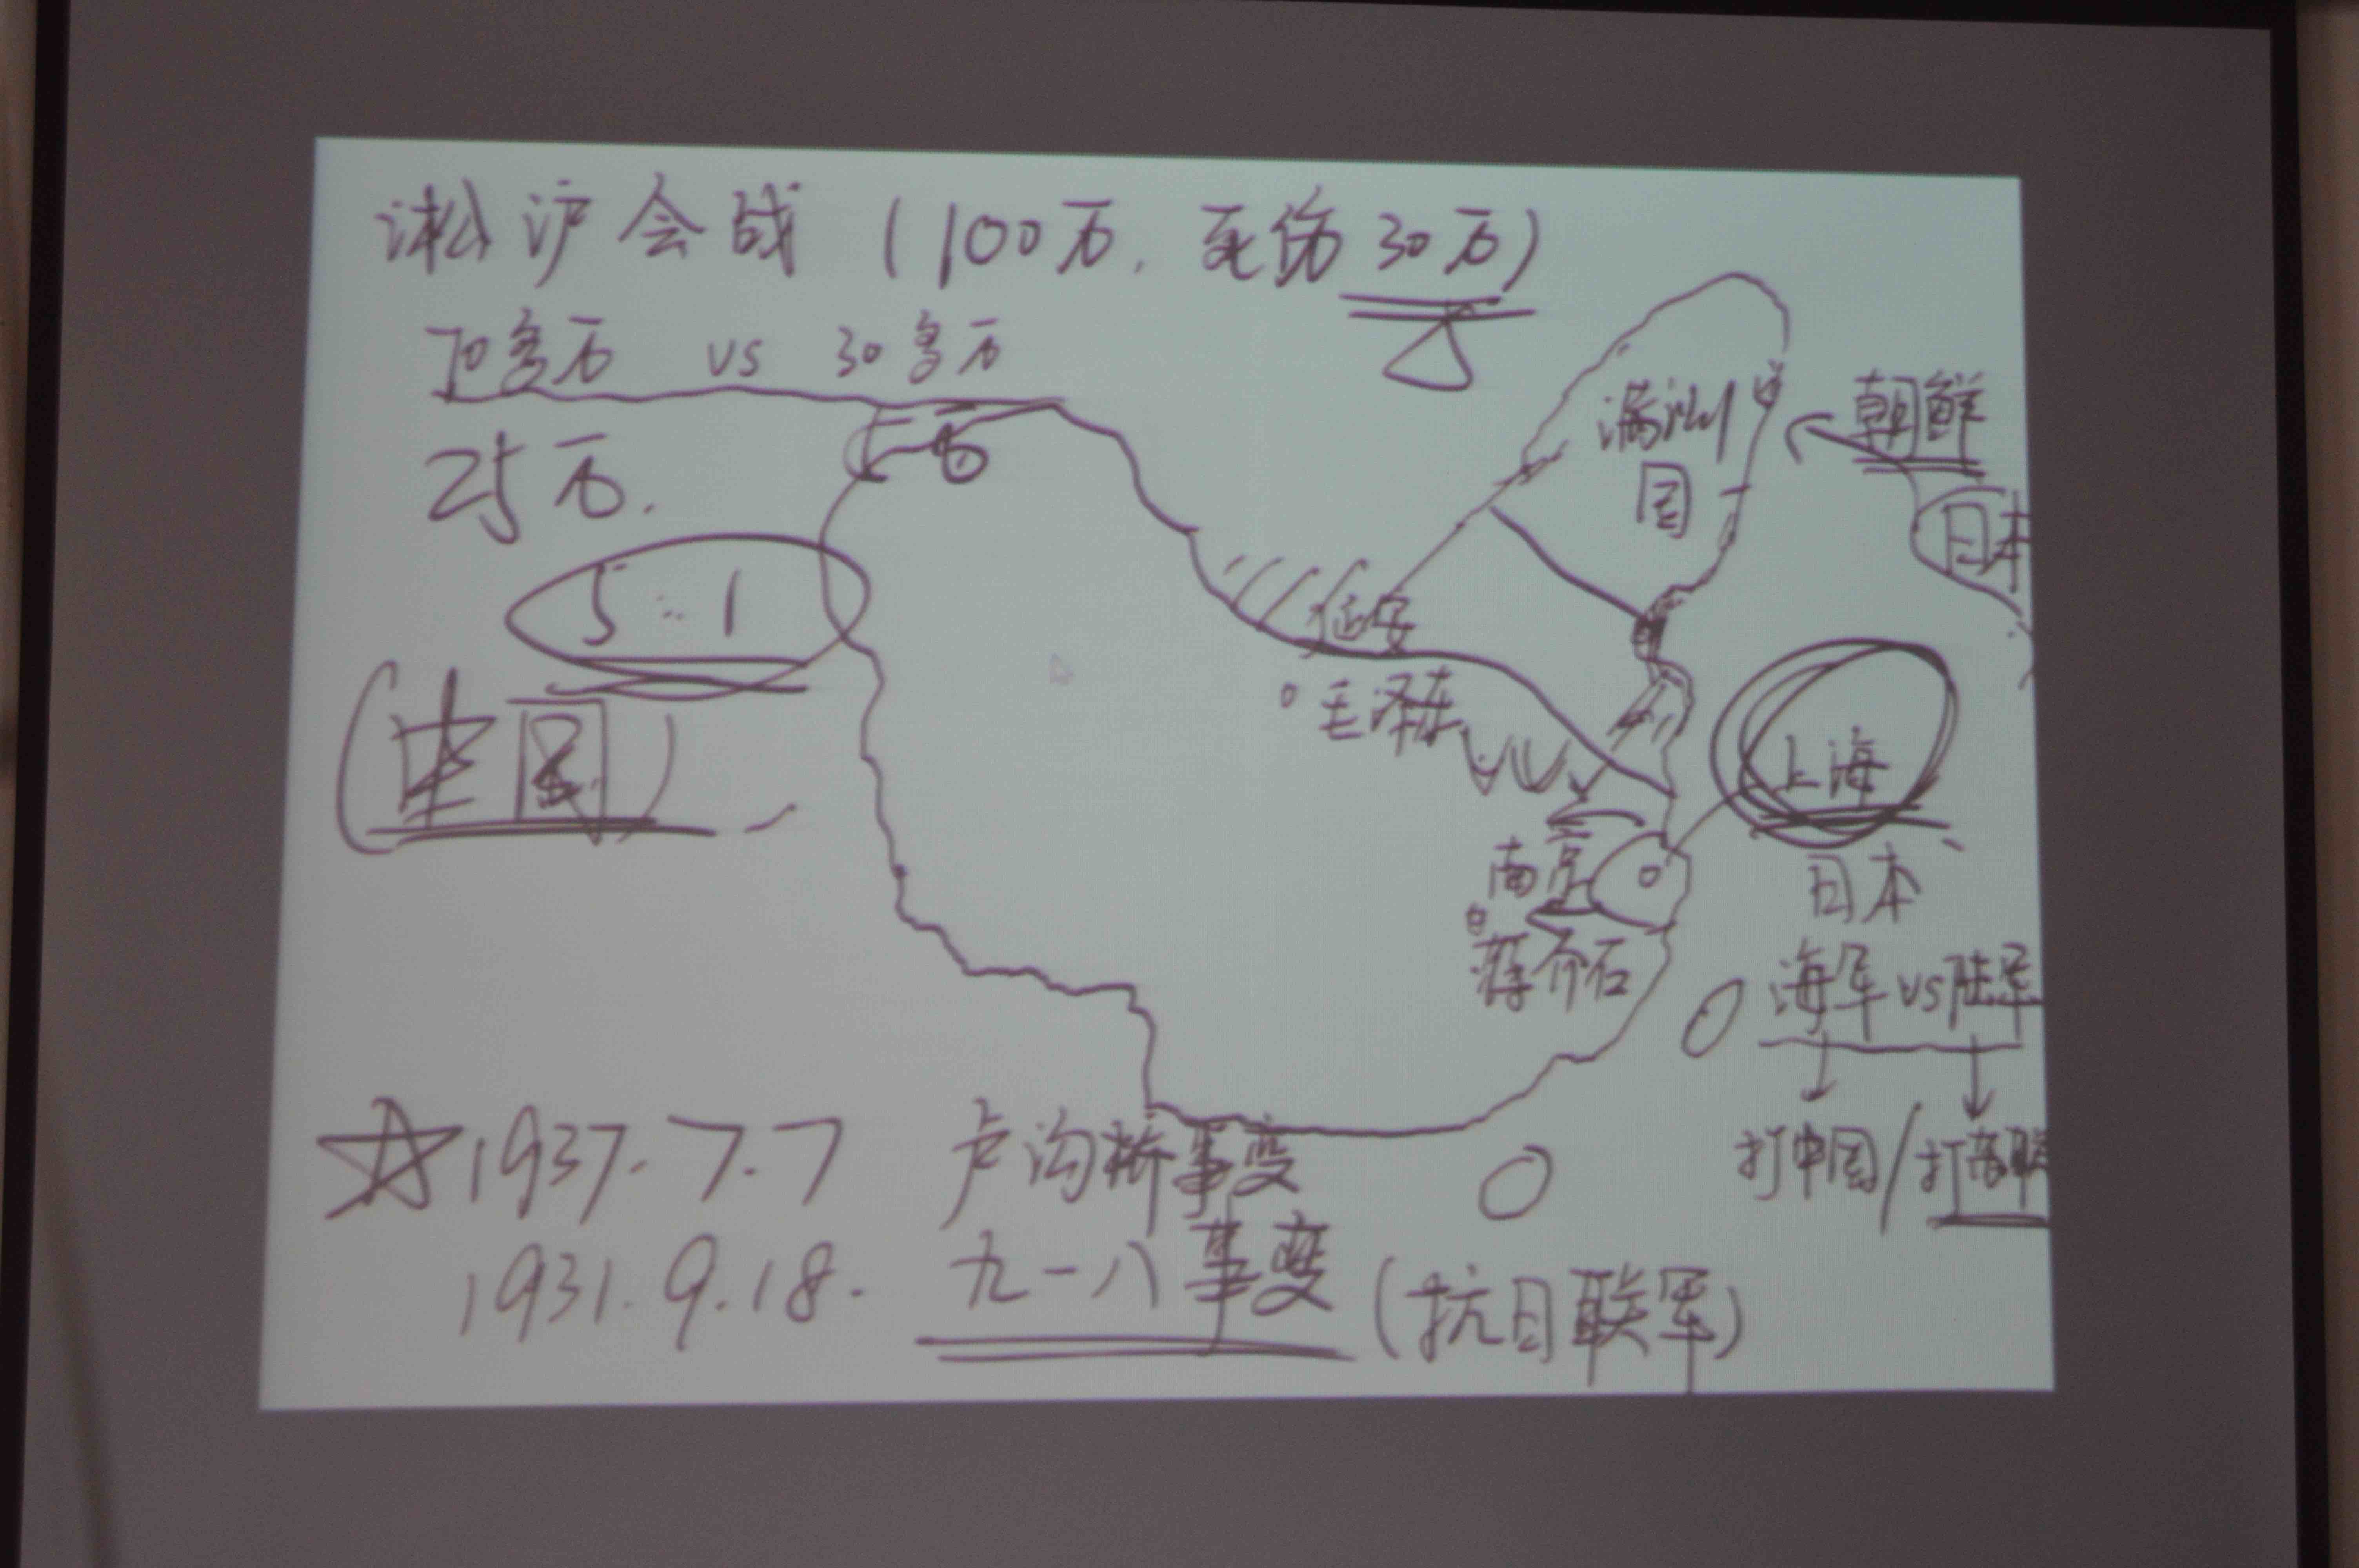 淞沪会战（100万，死伤30万）
70多万 vs 30多万
25万. 5万
5:1
（中国）
满洲国
朝鲜
日本
延安
毛泽东
上海
南京
蒋介石
日本
海军 vs 陆军
打中国/打苏联
1937.7.7 卢沟桥事变
1931.9.18. 九一八事变（抗日联军）